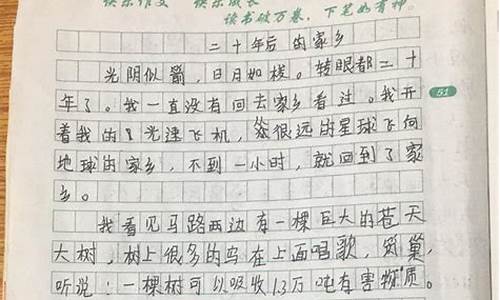 快乐作文 快乐成长
读书破万卷，下笔如有神。
二十年后的家乡
光阴似箭，日月如梭。转眼都二十
年了。我一直没有回去家乡看过。我开
51
着我的8光速飞机，从很远的星球飞向
地球的家乡，不到一小时，就回到了家
乡。
我看见马路两边有一棵巨大的苍天
大树，树上很多的鸟在上面唱歌，筑巢，
听说：一棵树可以吸收13万吨有害物质。